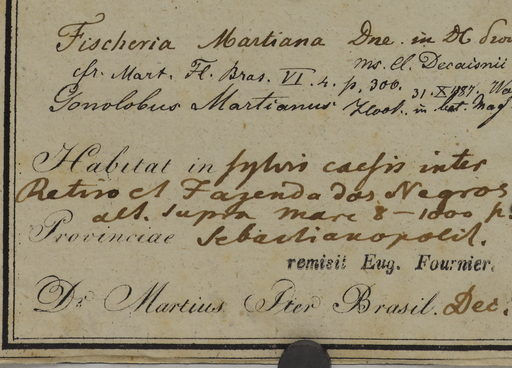 Fischeria Martiana Dne. in DC
ms. cl. Decaisnii
cfr. Mart. Fl. Bras. VI. 4. p. 300. 31. X
Gonolobus Martianus Hook. in bot. Mag
Habitat in sylvis caesis inter
Retiro et Fazenda dos Negros
alt. supra mare 8-1000 p.
Provinciae Sebastianopolit.
remisit Eug. Fournier.
Dr Martius Iter Brasil. Dec.